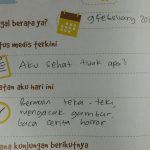 gal berapa ya?
9 February 20
tus medis terkini
Aku sehat
atan aku hari ini
Bermain teka-teki,
mengacak gambar.
baca cerita horror
ana kunjungan berikutnya